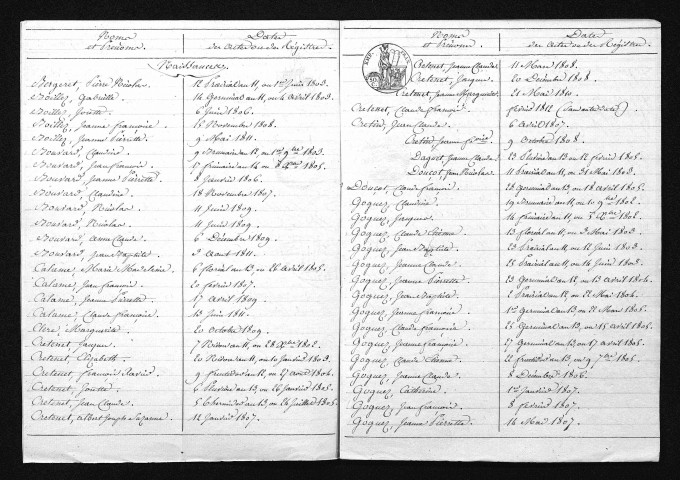 Noms et Prénoms. Dates des Actes ou des Régistres.
Naissances.
Bergeret, Pierre Nicolas. 12 Prairial an 11, ou 1er Juin 1803.
Boillez, Gabrielle. 14 Germinal an 11, ou 4 avril 1803.
Boillez, Josette. 6 Juin 1806.
Boillez, Jeanne françoise. 15 Novembre 1808.
Boillez, Jeanne Pierrette. 9 Mai 1811.
Bouvard, Claudine.
Bouvard, Jean françois. 17 frimaire an 14
Bouvard, Jeanne Pierrette. 8 Janvier 1806.
Bouvard, Claudine. 18 Novembre 1807.
Bouvard, Nicolas. 11 Juin 1809.
Bouvard, Nicolas. 11 Juin 1809.
Bouvard, anne Claude. 6 Décembre 1809.
Bouvard, Jean Baptiste. 3 Aout 1811.
Calame, Marie Madeleine. 6 floréal an 13, ou 26 avril 1805.
Calame, Jean françois. 20 février 1807.
Calame, Jeanne Pierrette. 17 avril 1809.
Calame, Claude françois. 13 Juin 1811.
Clerc, Marguerite. 20 octobre 1809.
Cretenet, Jacques. 7 Nivose an 11, ou 28 Xbre 1802.
Cretenet, Elizabeth. 20 Nivose an 11, ou 10 Janvier 1803.
Cretenet, françois Xavier.
Cretenet, Josette. 6 Pluviose an 13, ou 26 Janvier 1805.
Cretenet, Jean Claude. 5 Thermidor an 13, ou 24 Juillet 1805.
Cretenet, albert Joseph Suzanne. 12 Janvier 1807.
Noms et Prénoms. Dates des Actes ou des Régistres.
Cretenet, Jeanne Claude. 11 Mars 1808.
Cretenet, Jacques. 20 Décembre 1808.
Cretenet, Jeanne Marguerite. 21 Mai 1810.
Cretenet, Claude françois. février 1812
Cretin, Jean Claude. 6 avril 1807.
Cretin, Jeanne fçoise. 9 octobre 1808.
Dagot, Jeanne Claude. 23 Pluviose an 13 ou 12 février 1805.
Doucot, Jean Nicolas. 11 Prairial an 11, ou 31 Mai 1803.
Doucot, Claude françois. 28 germinal an 13 ou 18 avril 1805.
Goguez, Claudine. 19 Brumaire an 11, ou 10 9bre 1802.
Goguez, Jacques. 16 frimaire an 11, ou 7 Xbre 1802.
Goguez, Claude Etienne. 13 floréal an 11, ou 3 Mai 1803.
Goguez, Jean Baptiste. 23 Prairial an 11, ou 12 Juin 1803.
Goguez, Jeanne Claude. 25 Prairial an 11, ou 14 Juin 1803.
Goguez, Jeanne Pierrette. 23 Germinal an 12, ou 13 avril 1804.
Goguez, Jean Baptiste. 2 Prairial an 12, ou 22 Mai 1804.
Goguez, Jeanne françoise. 1er Germinal an 13, ou 22 Mars 1805.
Goguez, Claude françois. 25 Germinal an 13, ou 15 avril 1805.
Goguez, Jeanne françoise. 27 Germinal an 13, ou 17 avril 1805.
Goguez, Claude Etienne. 22 fructidor an 13, ou 9 7bre 1805.
Goguez, Jeanne Claude. 8 Décembre 1806.
Goguez, Catherine. 1er Janvier 1807.
Goguez, Jean françois. 8 février 1807.
Goguez, Jeanne Pierrette. 16 Mai 1807.